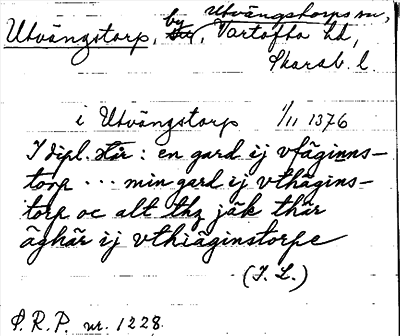 Utvängstorp, by, Utvängstorps sn,
Vartofta hd,
Skarab. l.
i Utvängstorp 1/11 1376
I dipl. står: en gard ij vtäginns-
torp ... min gard ij vthägins-
torp oc alt thz jäk thär
äghär ij vthiäginstorpe
(I. L.)
S.R.P. nr. 1228.